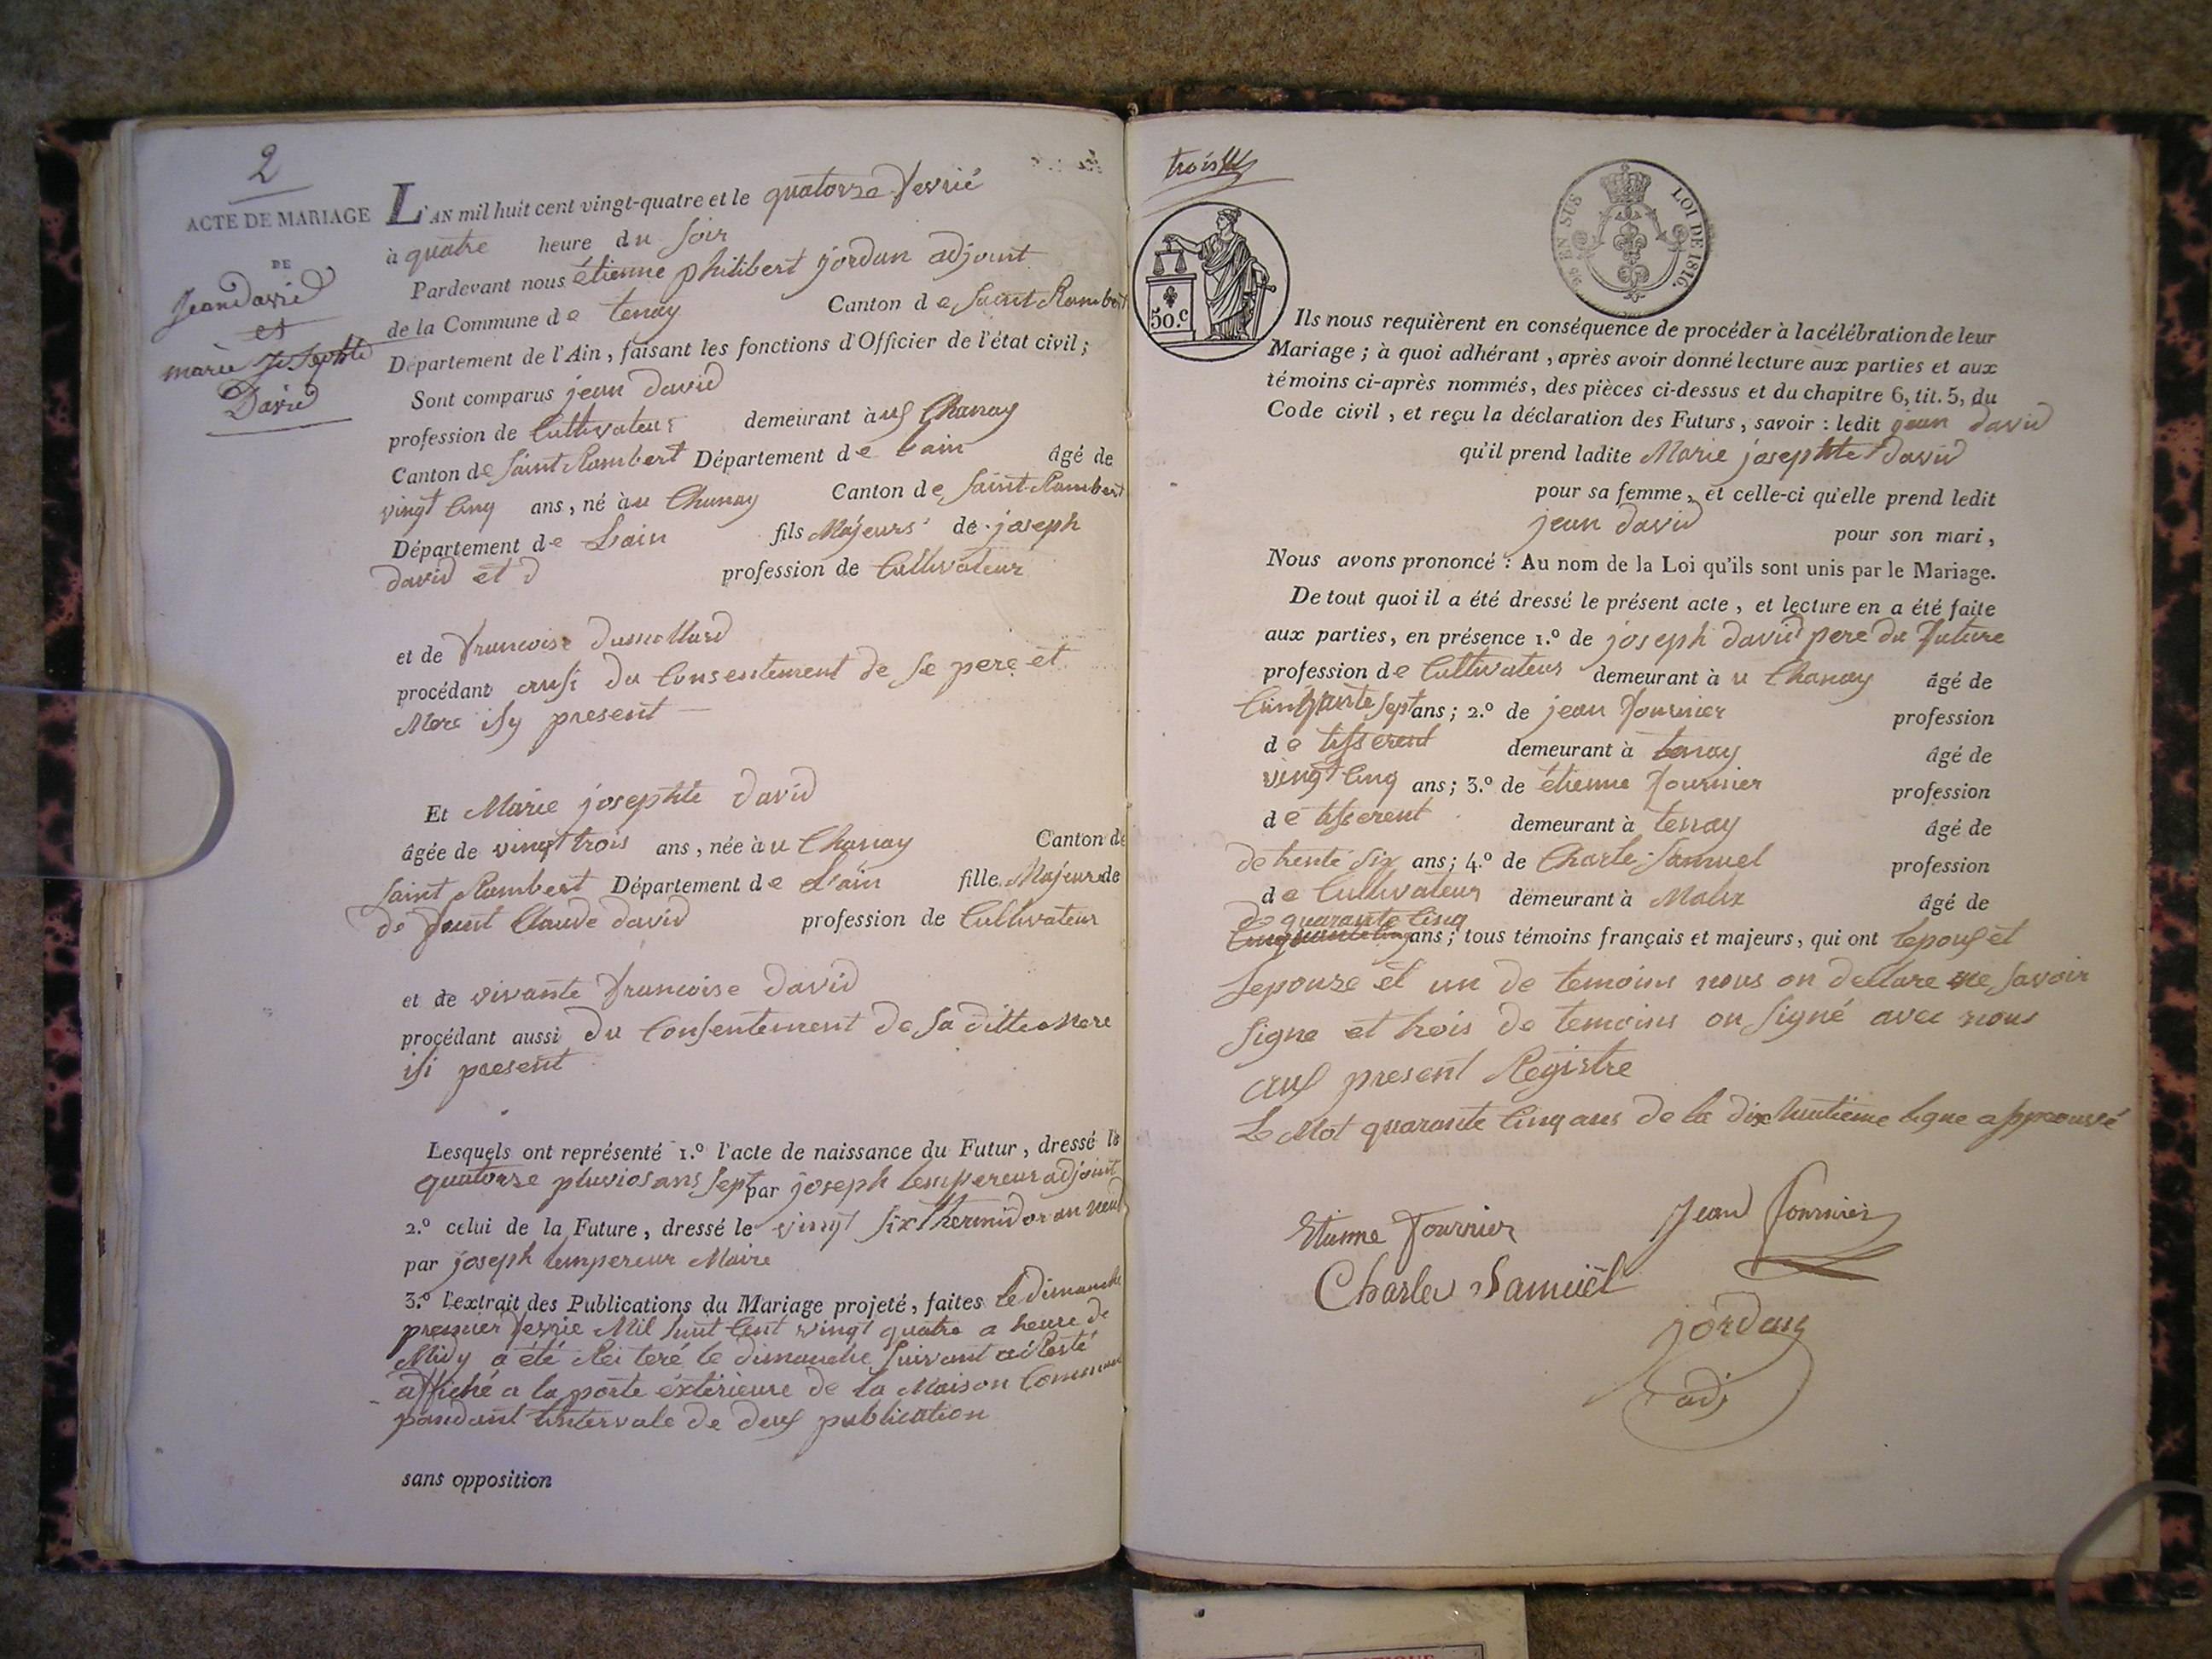 2
ACTE DE MARIAGE
DE
Jean David
et
marie Josephte
David
L'AN mil huit cent vingt-quatre et le quatorze fevrié
à quatre heure du soir
Pardevant nous étienne philibert jordan adjoint
de la Commune de tenay Canton de Saint Rambert
Département de l'Ain, faisant les fonctions d'Officier de l'état civil;
Sont comparus jean david
profession de Cultivateur demeurant à aux Chanay
Canton de Saint Rambert Département de Lain âgé de
vingt Cinq ans, né à u Chanay Canton de Saint Rambert
Département de Lain fils Majeurs de joseph
david et d profession de Cultivateur
et de francoise dumollard
procédant ausi du Consentement de Se pere et
Mere isy present
Et Marie josephte david
âgée de vingt trois ans, née à u Chanay Canton de
Saint Rambert Département de Lain fille Majeur de
de feunt Claude david profession de Cultivateur
et de vivante francoise david
procédant aussi du Consentement de Sa ditte Mere
isi present
Lesquels ont représenté 1.° l'acte de naissance du Futur, dressé le
quatorze pluvios ans Sept par joseph Lempereur adjoint
2.° celui de la Future, dressé le vingt Six thermidor an neuf
par joseph Lempereur Maire
3.° l'extrait des Publications du Mariage projeté, faites le dimanche
premier fevrie Mil huit Cent vingt quatre a heure de
Midy a été Rei teré le dimanche Suivant a été Resté
affiché a la porte éxtérieure de la Maison Commune
pandant Lintervale de deux publication
sans opposition
trois
50.c
EN SUS LOI DE 1816.
Ils nous requièrent en conséquence de procéder à la célébration de leur
Mariage; à quoi adhérant, après avoir donné lecture aux parties et aux
témoins ci-après nommés, des pièces ci-dessus et du chapitre 6, tit. 5, du
Code civil, et reçu la déclaration des Futurs, savoir: ledit jean david
qu'il prend ladite Marie josephte david
pour sa femme, et celle-ci qu'elle prend ledit
jean david pour son mari,
Nous avons prononcé: Au nom de la Loi qu'ils sont unis par le Mariage.
De tout quoi il a été dressé le présent acte, et lecture en a été faite
aux parties, en présence 1.° de joseph david pere du future
profession de Cultivateur demeurant à u Chanay âgé de
Cinquante Sept ans; 2.° de jean fournier profession
de tisserent demeurant à tenay âgé de
vingt Cinq ans; 3.° de étienne fournier profession
de tisserent demeurant à tenay âgé de
de trente Six ans; 4.° de Charle Samuel profession
de Cultivateur demeurant à Malix âgé de
de quarante Cinq
Cinquante Cinq ans; tous témoins français et majeurs, qui ont Lepoux et
Lepouze et un de temoins nous on dellare ne Savoir
Signe et trois de temoins on Signé avec nous
aux present Registre
Le Mot quarante Cinq ans de la dix huitieme ligne approuvé
Etienne Fournier
Jean Fournier
Charles Samuël
jordan
adj